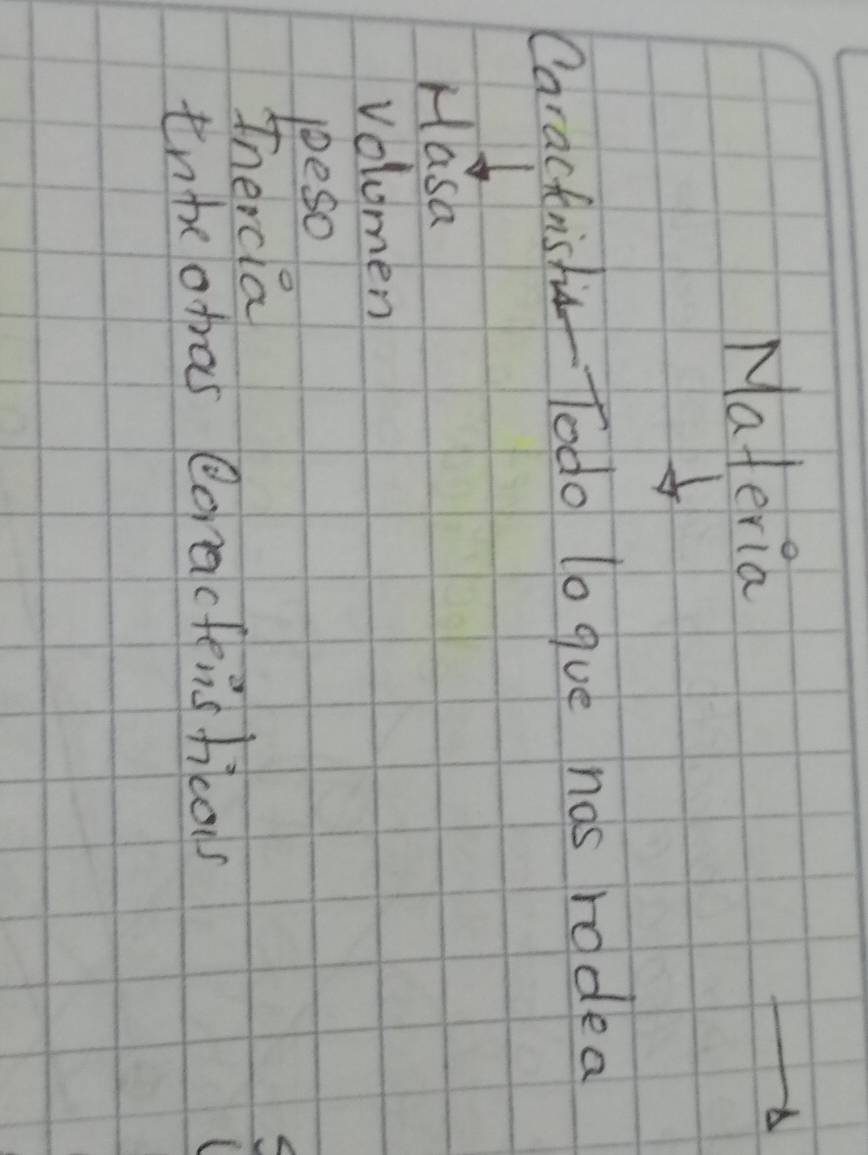 Materia
Caracteristi Todo lo que nos rodea
Masa
Volumen
peso
Inercia
Entre otras Caracteristicas